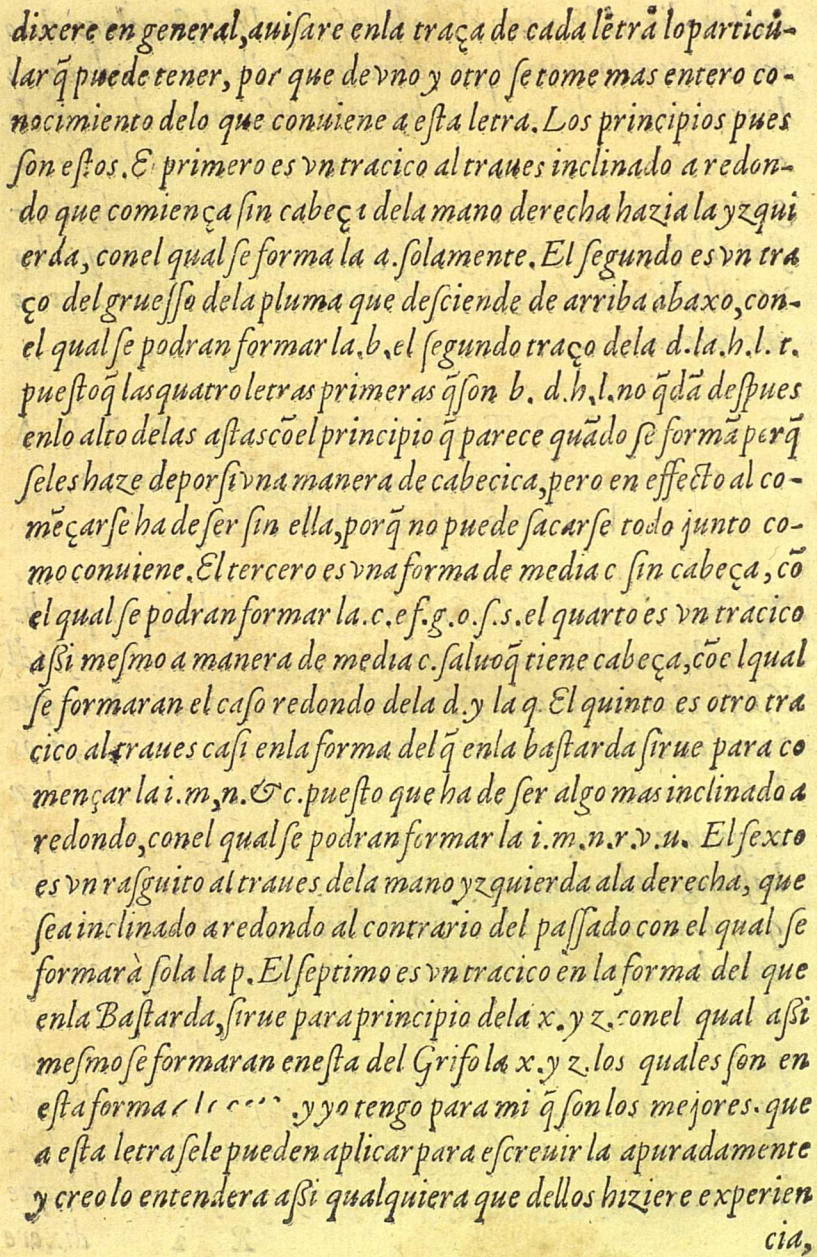 dixere en general, auiſare enla traça de cada letra loparticu-
lar q̃ puede tener, por que de vno y otro ſe tome mas entero co-
nocimiento delo que conuiene a eſta letra. Los principios pues
ſon eſtos. E primero es vn tracico al traues inclinado a redon-
do que comiença ſin cabeça dela mano derecha hazia la yzqui
erda, conel qual ſe forma la a. ſolamente. El ſegundo es vn tra
ço del grueſſo dela pluma que deſciende de arriba abaxo, con-
el qual ſe podran formar la. b. el ſegundo traço dela d. la. h. l. t.
pueſto q̃ las quatro letras primeras q̃ ſon b. d. h. l. no q̃dã deſpues
enlo alto delas aſtas cõ el principio q̃ parece quãdo ſe formã porq̃
ſeles haze deporſi vna manera de cabecica, pero en effecto al co-
mẽçarſe ha de ſer ſin ella, porq̃ no puede ſacarſe todo junto co-
mo conuiene. El tercero es vna forma de media c ſin cabeça, cõ
el qual ſe podran formar la. c. e f. g. o. ſ. s. el quarto es vn tracico
aſſi meſmo a manera de media c. ſaluo q̃ tiene cabeça, cõe lqual
ſe formaran el caſo redondo dela d. y la q. El quinto es otro tra
cico al traues caſi enla forma del q̃ enla baſtarda ſirue para co
mençar la i. m, n. &c. pueſto que ha de ſer algo mas inclinado a
redondo, conel qual ſe podran formar la i. m. n. r. v. u. El ſexto
es vn raſguito al traues dela mano yzquierda ala derecha, que
ſea inclinado a redondo al contrario del paſſado con el qual ſe
formarà ſola la p. El ſeptimo es vn tracico en la forma del que
enla Baſtarda, ſirue para principio dela x. y z. conel qual aſſi
meſmo ſe formaran eneſta del Grifo la x. y z. los quales ſon en
eſta forma . y yo tengo para mi q̃ ſon los mejores. que
a eſta letra ſele pueden aplicar para eſcreuir la apuradamente
y creo lo entendera aſſi qualquiera que dellos hiziere experien
cia,